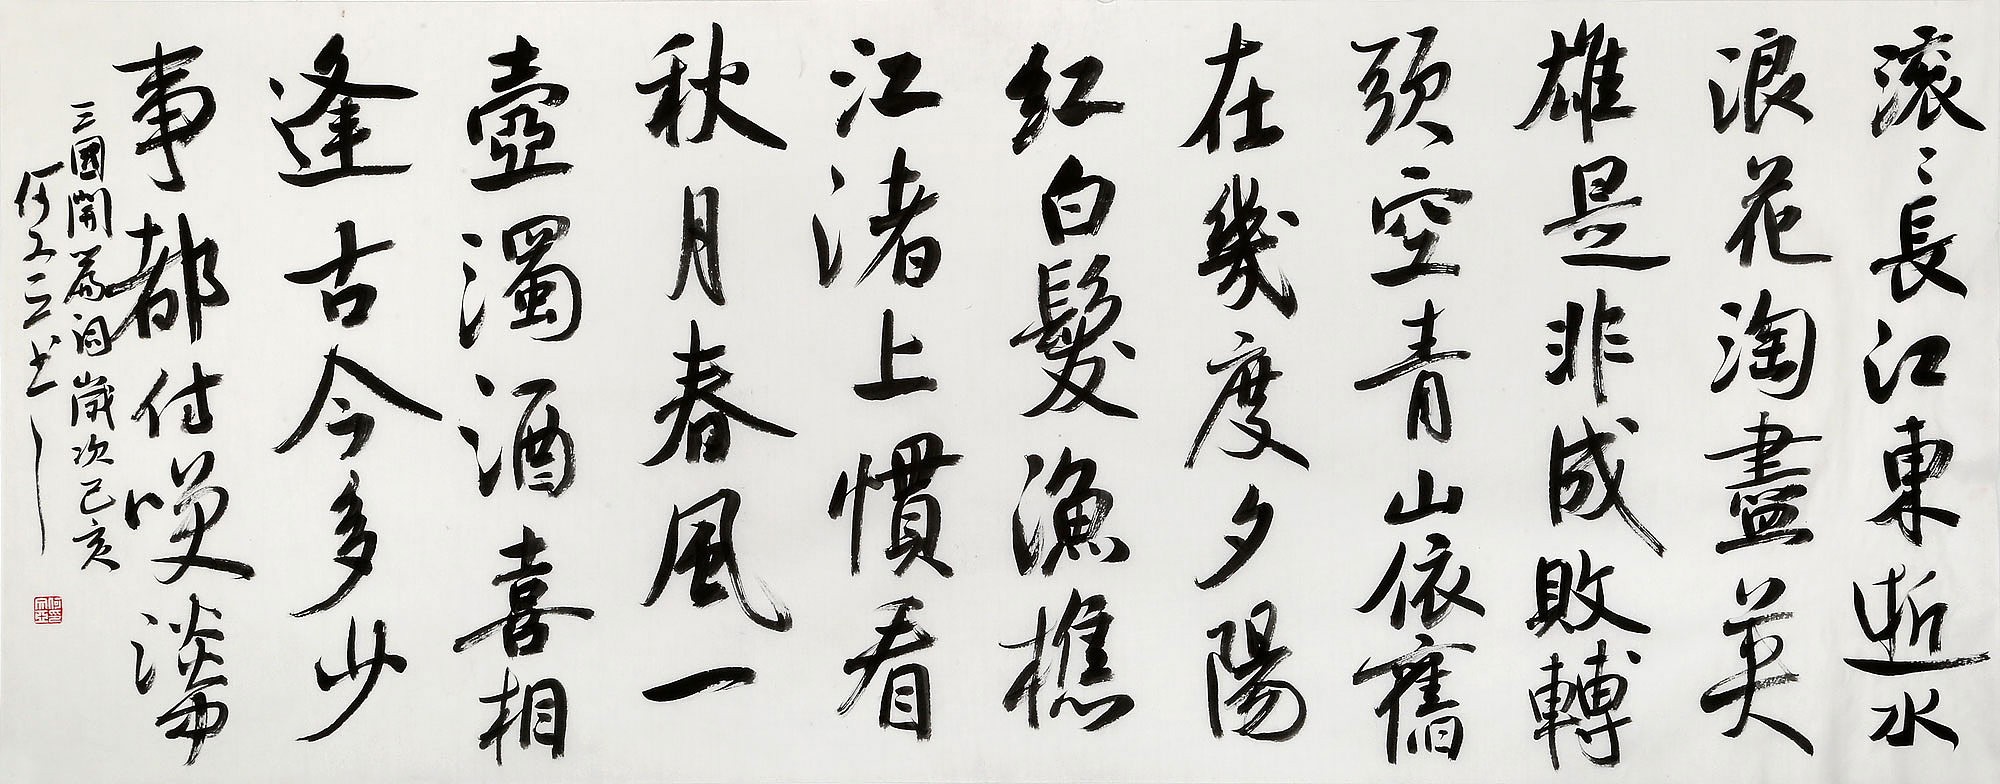 滚〻長江東逝水
浪花淘盡英
雄是非成敗轉
頭空青山依舊
在幾度夕陽
红白髮漁樵
江渚上慣看
秋月春風一
壺濁酒喜相
逢古今多少
事都付咲談中
三國開篇词歲次己亥
何书